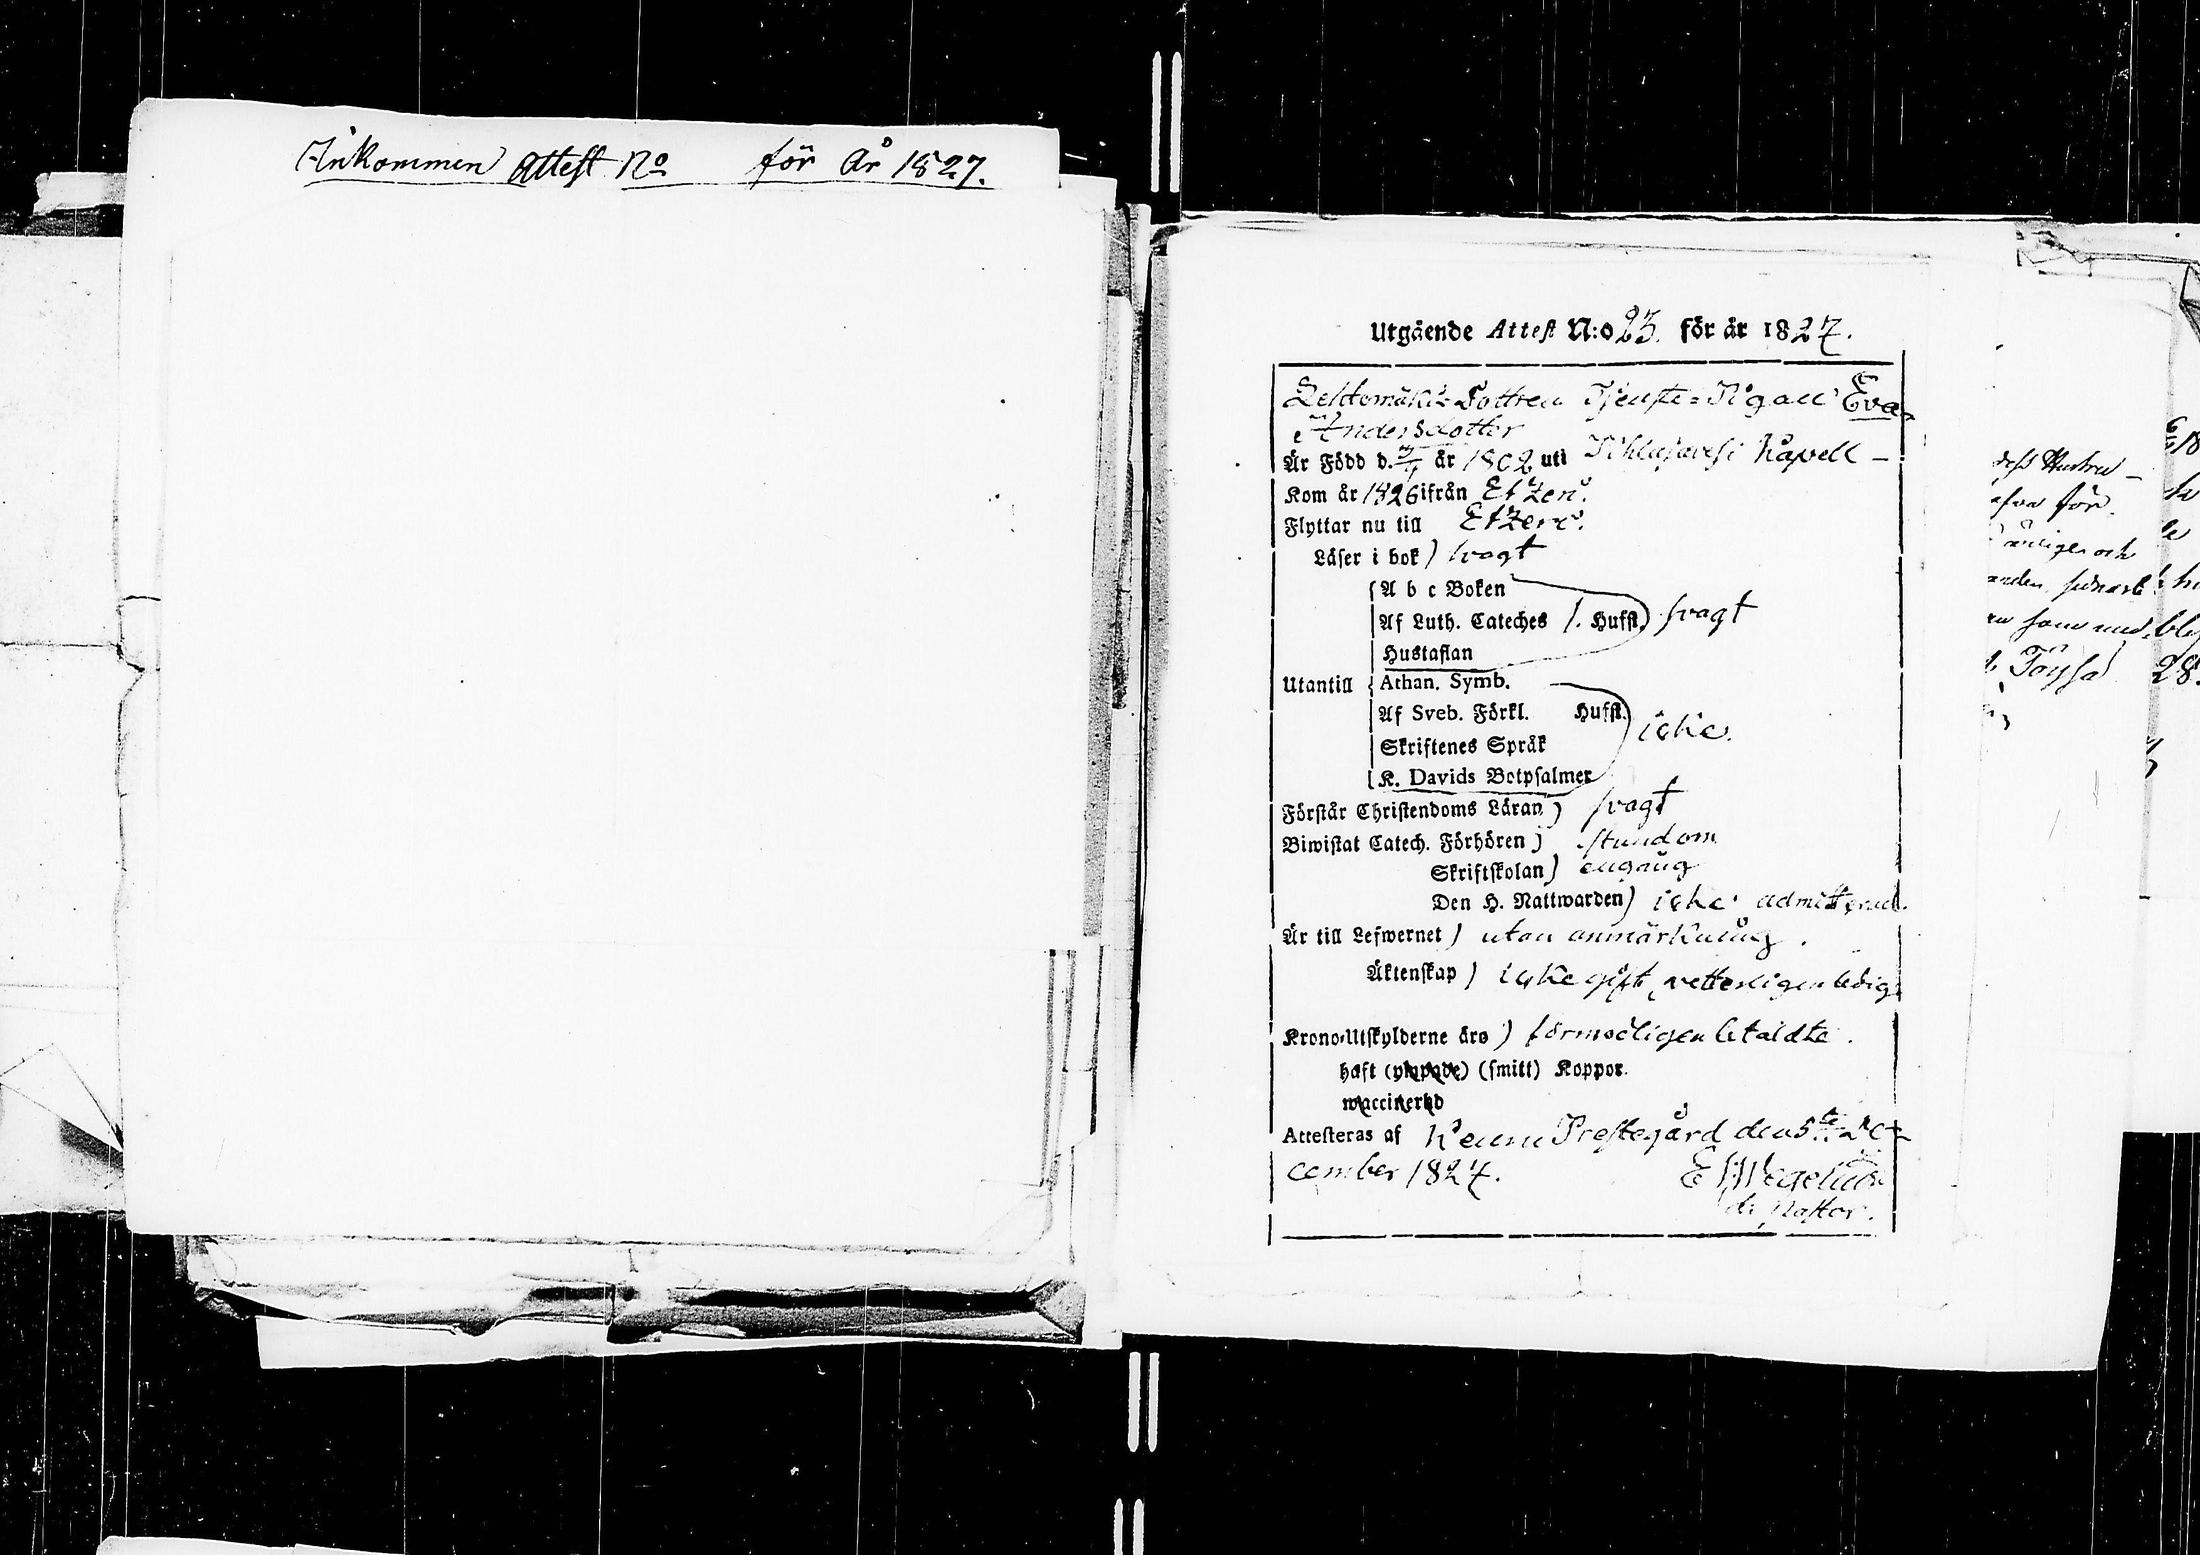 Inkommen Attest No för år 1827.
Utgående Attest N:o 23. för år 1827.
Tjenste-Pigan Eva
Andersdotter
Är Född d. år 1802 uti Pihlajavesi Kapell
Kom år 1826 ifrån Etzeri.
Flyttar nu till Etzeri.
Läser i bok) svagt
A b c Boken
Af Luth. Cateches 1. Hufst. svagt
Hustaflan
Utantill Athan. Symb.
Af Sveb. Förkl. Hufst. icke.
Skriftenes Språk
K. Davids Botpsalmer
Förstår Christendoms Läran) svagt
Biwistat Catech. Förhören) stundom
Skriftskolan) engång
Den H. Nattwarden) icke admitterad.
Är till Lefwernet) utan anmärkning.
Äktenskap) icke gift, vetterligen ledig
Krono-Utskylderne äro) förmodligen betaldte.
haft (ympade) (smitt) Koppor.
waccinerad
Attesteras af Keuru Prestegård den 5te De-
cember 1827. E Wegelius
Pastor.
dess Hustru
för
och
anden
som med
Töysä
28.